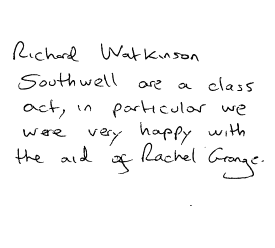 Richard Watkinson
Southwell are a class
act, in particular we
were very happy with
the aid of Rachel Grange.